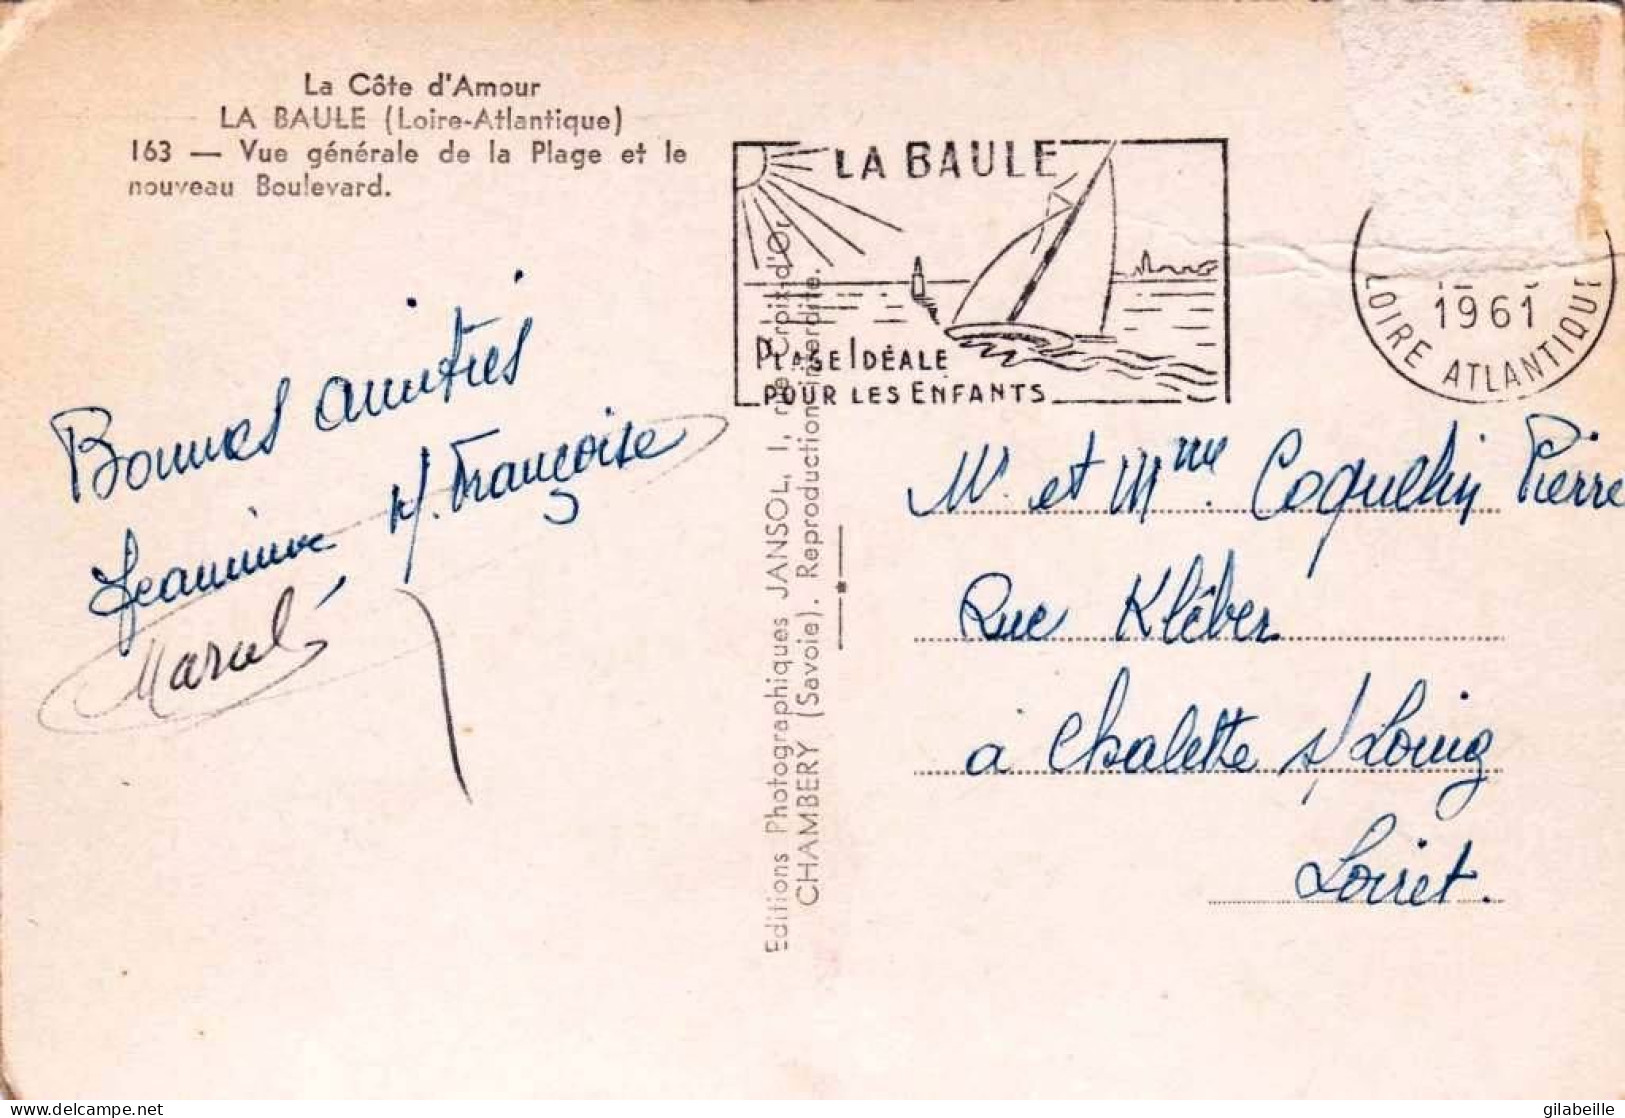 La Côte d'Amour
LA BAULE (Loire-Atlantique)
163 — Vue générale de la Plage et le
nouveau Boulevard.
LA BAULE
PLAGE IDÉALE
POUR LES ENFANTS
1961
LOIRE ATLANTIQUE
Bonnes amitiés
Jeannine M. Françoise
Marcel
Editions Photographiques JANSOL, 1, rue Croix-d'Or,
CHAMBERY (Savoie). Reproduction interdite.
Mr. et Mme. Coquelin Pierre
Rue Kléber
à Chalette s/ Loing
Loiret.
delcampe.net
gilabeille